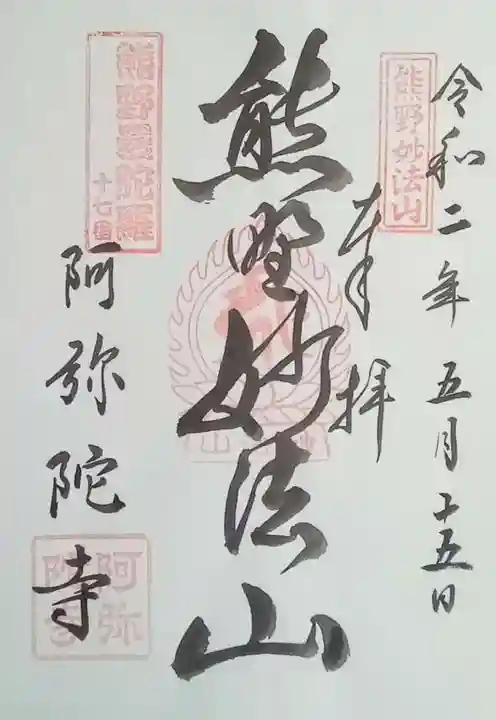 令和二年五月十五日
熊野妙法山
奉拝
熊野妙法山
熊野曼陀羅
十七番
阿弥陀寺
阿弥
陀寺